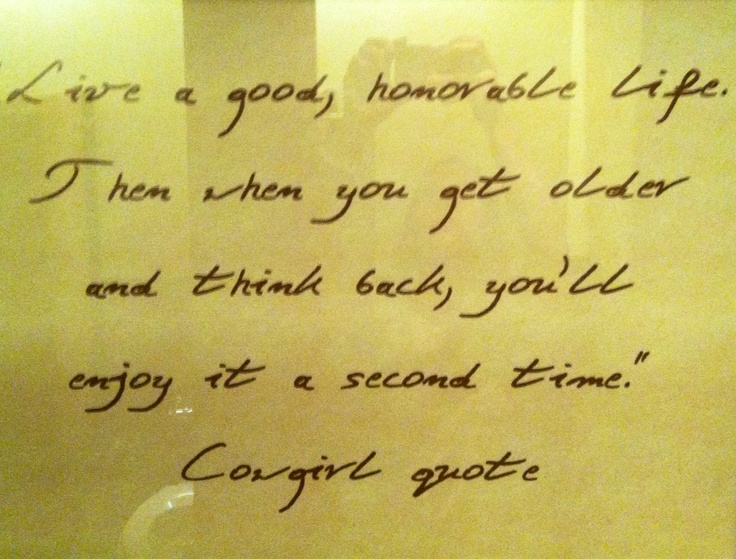 "Live a good, honorable life.
Then when you get older
and think back, you'll
enjoy it a second time."
Cowgirl quote